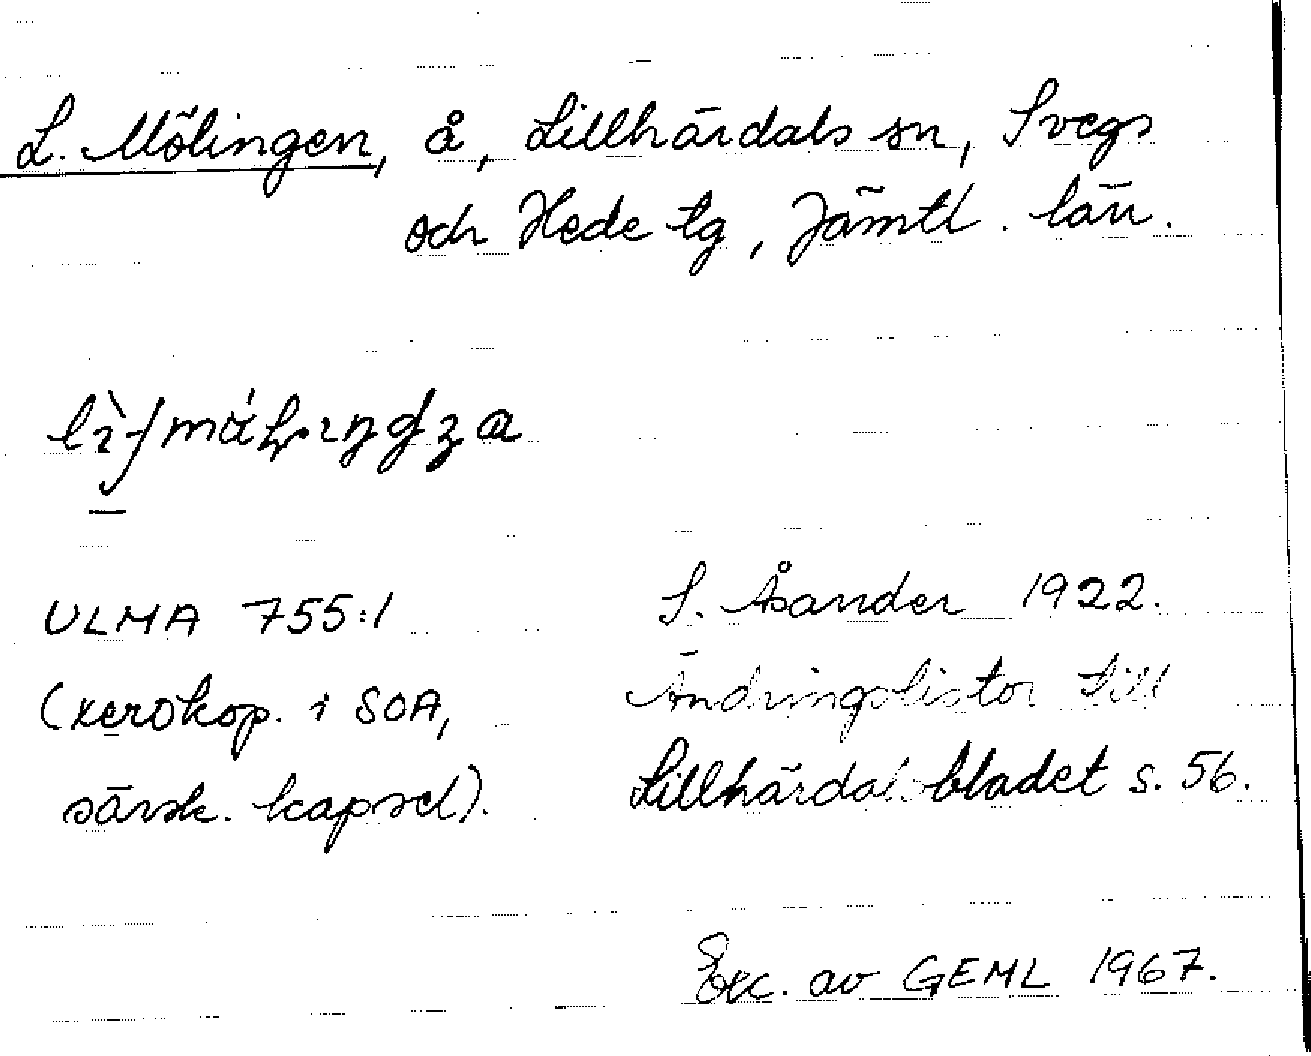 L. Mölingen, å, Lillhärdals sn, Svegs
och Hede tg, Jämtl. län.
ULMA 755:1
(xerokop. i SOA,
särsk. kapsel).
S. Åsander 1922.
Ändringslistor till
Lillhärdalsbladet s. 56.
Exc. av GEML 1967.